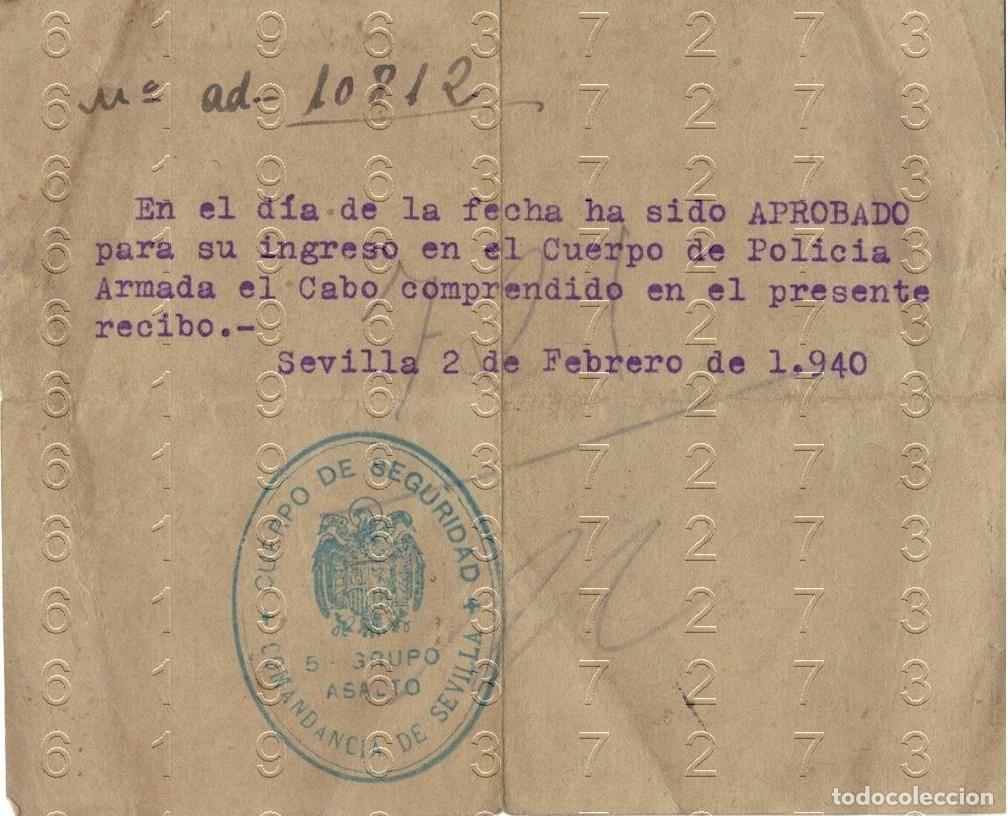 Nº ad.- 10812
En el día de la fecha ha sido APROBADO
para su ingreso en el Cuerpo de Policia
Armada el Cabo comprendido en el presente
recibo.-
Sevilla 2 de Febrero de 1.940
CUERPO DE SEGURIDAD
5 - GRUPO
ASALTO
COMANDANCIA DE SEVILLA
6 1 9 6 3 7 2 7 3
todocoleccion